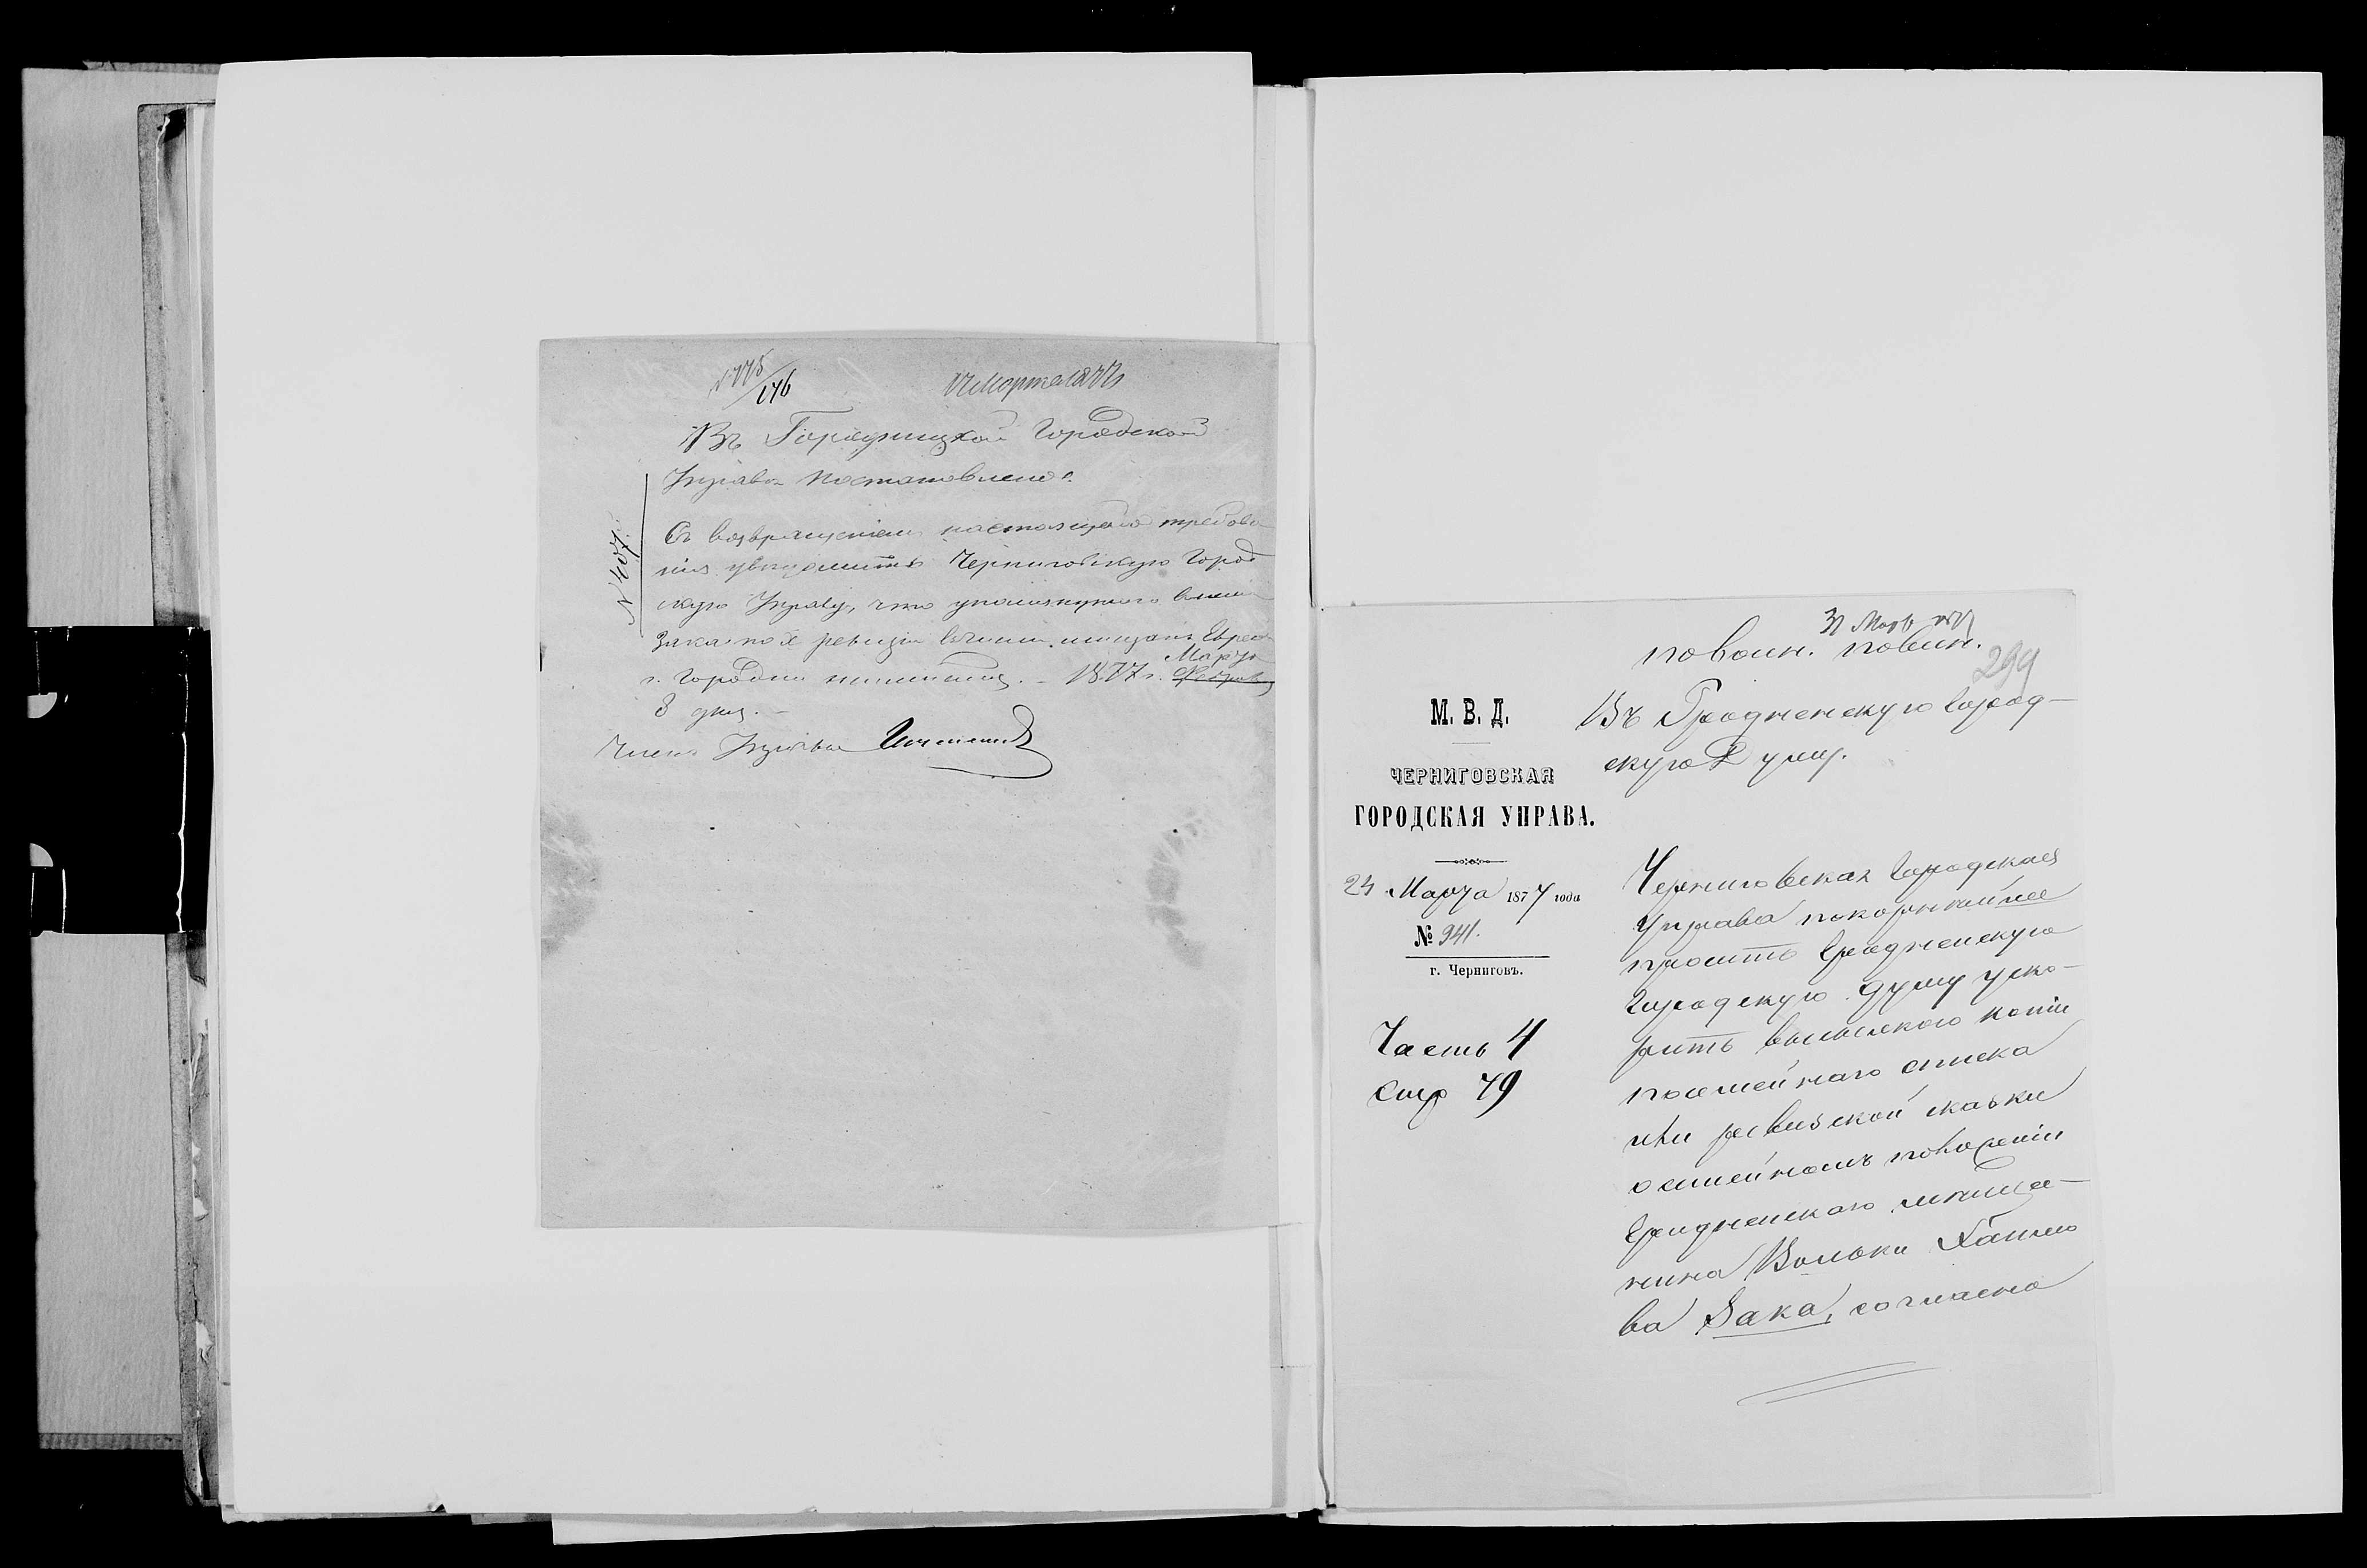 № 775/146
17 Марта 1877
Въ Городницкой Городской
Управѣ постановлено:
Съ возвращеніемъ настоящаго требова
нія увѣдомить Черниговскую Город
скую Управу, что упомянутого въ нем
Зака по X ревизіи в числѣ мещанъ Евреев
Марта
г. Городни не имѣется. – 1877 г.
8 дня. –
Членъ Управы
№ 407.
31 Мар
по воин. повин.
299
М. В. Д.
ЧЕРНИГОВСКАЯ
ГОРОДСКАЯ УПРАВА.
24 Марта 1877 года
№ 941.
г. Черниговъ.
Часть 4
Стр 79
Въ Гродненскую Город-
скую Думу.
Черниговская Городская
Управа покорнѣйше
проситъ Гродненскую
Городскую Думу уско-
рить высылкою копіи
посемейнаго списка
или ревизской сказки
о семейномъ положеніи
Гродненскаго мѣща-
нина Вольки Хаимо
ва Зака, согласно